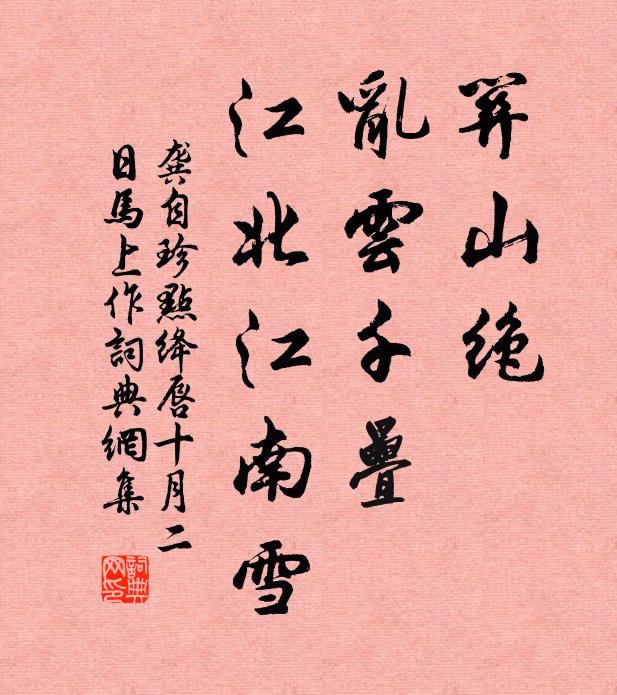 關山絕
亂雲千疊
江北江南雪
龔自珍點絳唇十月二
日馬上作詞典網集
詞典
网印